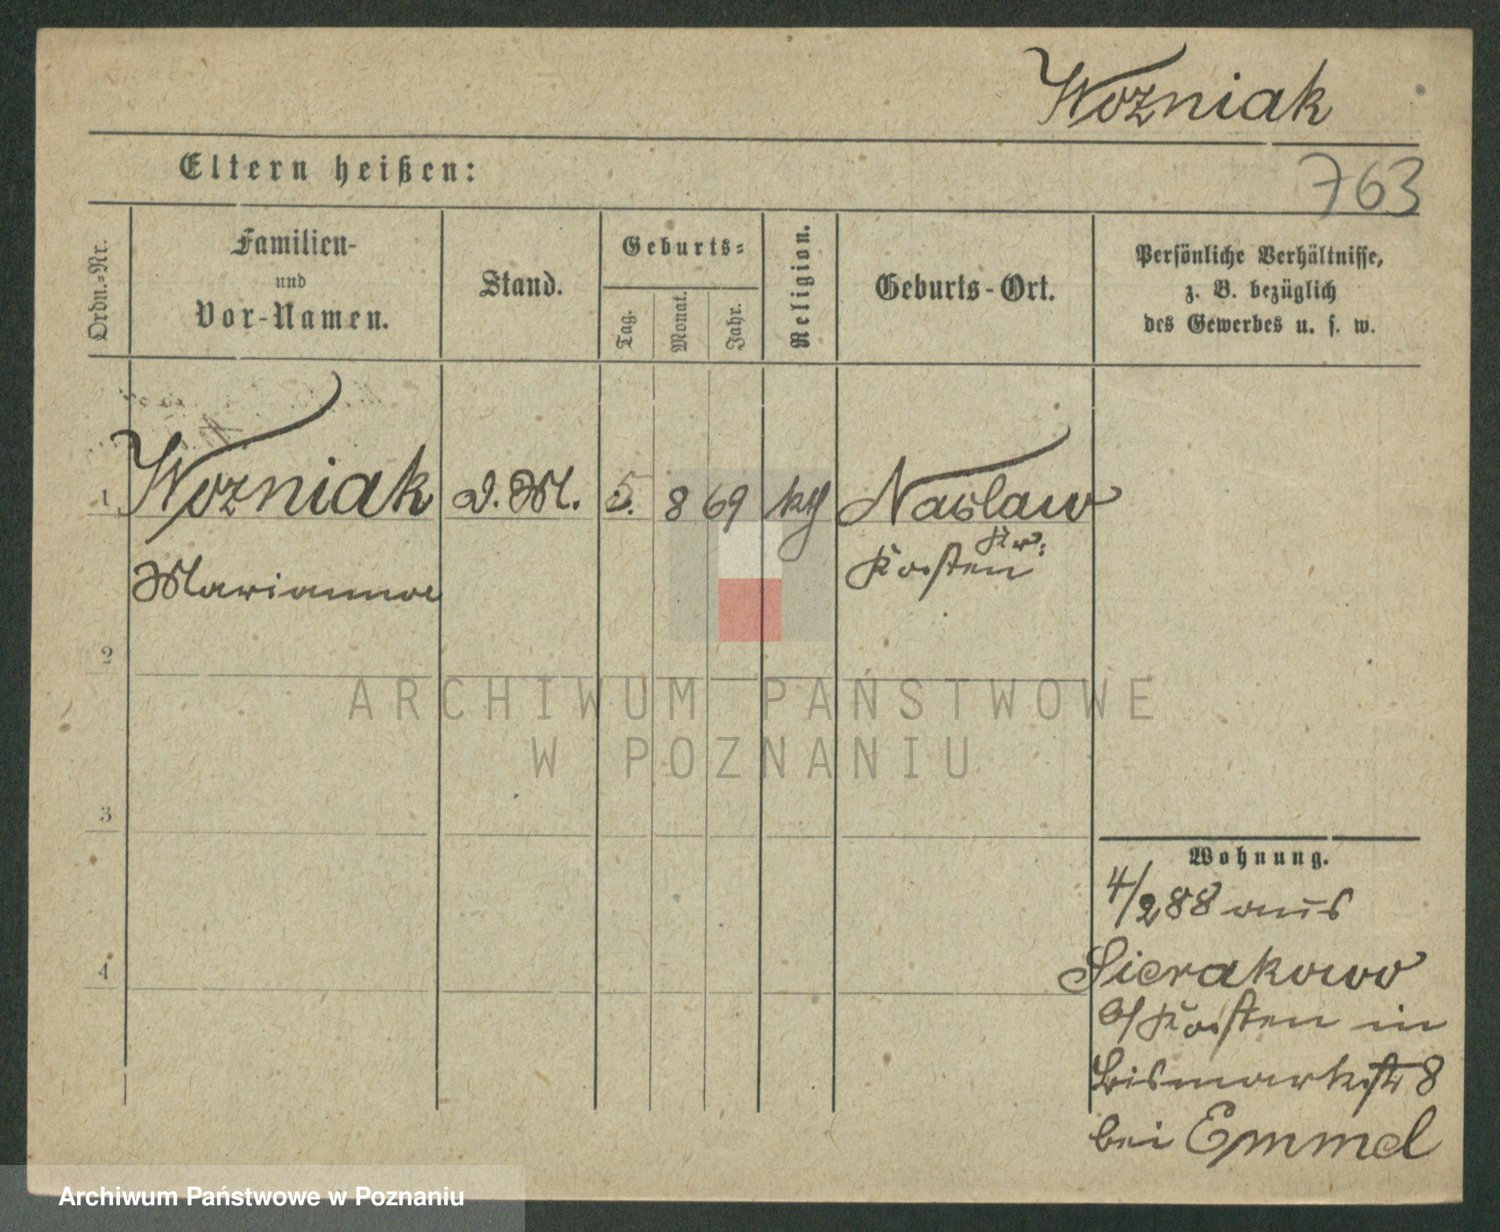 Wozniak
763
Eltern heißen:
Ordn.-Nr.
Familien-
und
Vor-Namen.
Stand.
Geburts-
Tag.
Monat.
Jahr.
Religion.
Geburts-Ort.
Persönliche Verhältnisse,
z. B. bezüglich
des Gewerbes u. s. w.
1 Wozniak D.M. 5. 8 69 kth Naslaw
Kr:
Marianna Kosten
2
ARCHIWUM PAŃSTWOWE
W POZNANIU
3
Wohnung.
4/288 aus
4
Sierakowo
b/Kosten in
Bismarkstr 8
bei Emmel
Archiwum Państwowe w Poznaniu